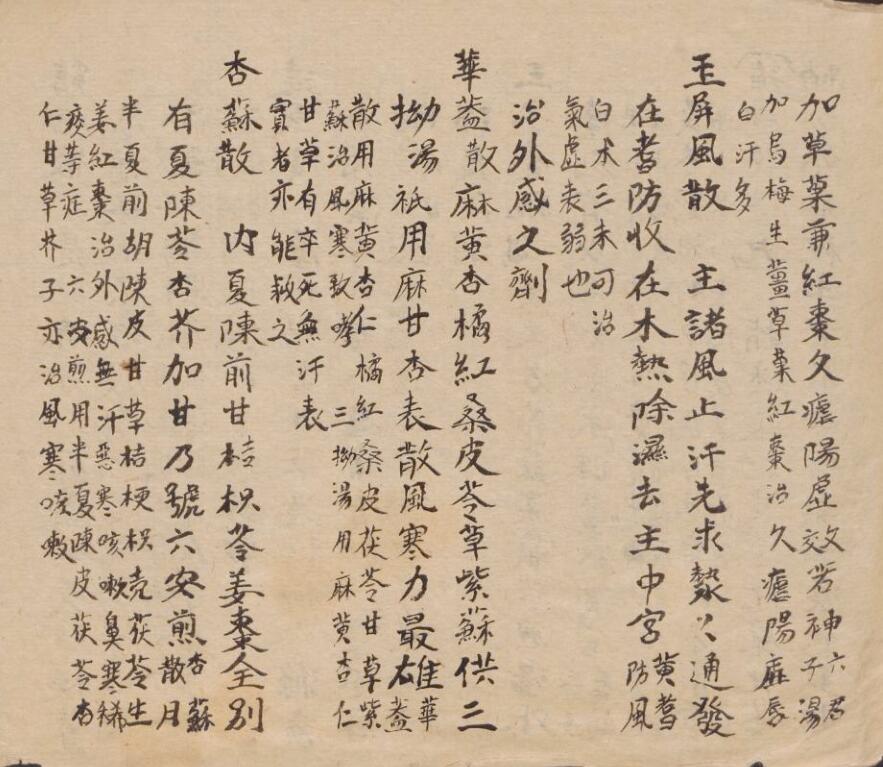 加草菓兼紅棗久瘧陽虛效若神六君子湯
加烏梅生薑草菓紅棗治久瘧陽虛唇
白汗多
玉屏風散 主諸風止汗先求熱々通發
在耆防收在木熱除濕去主中宮黃耆防風
白朮三味可治
氣虛表弱也
治外感之劑
華蓋散麻黃杏橘紅桑皮苓草紫蘇供三
拗湯衹用麻甘杏表散風寒力最雄華蓋
散用麻黃杏仁橘紅桑皮茯苓甘草紫
蘇治風寒致哮三拗湯用麻黃杏仁
甘草有卒死無汗表
實者亦能救之
杏蘇散 內夏陳前甘桔枳苓姜棗全別
有夏陳苓杏芥加甘乃號六安煎杏蘇散用
半夏前胡陳皮甘草桔梗枳壳茯苓生
姜紅棗治外感無汗惡寒咳嗽鼻寒稀
痰等症六安煎用半夏陳皮茯苓杏
仁甘草芥子亦治風寒咳嗽